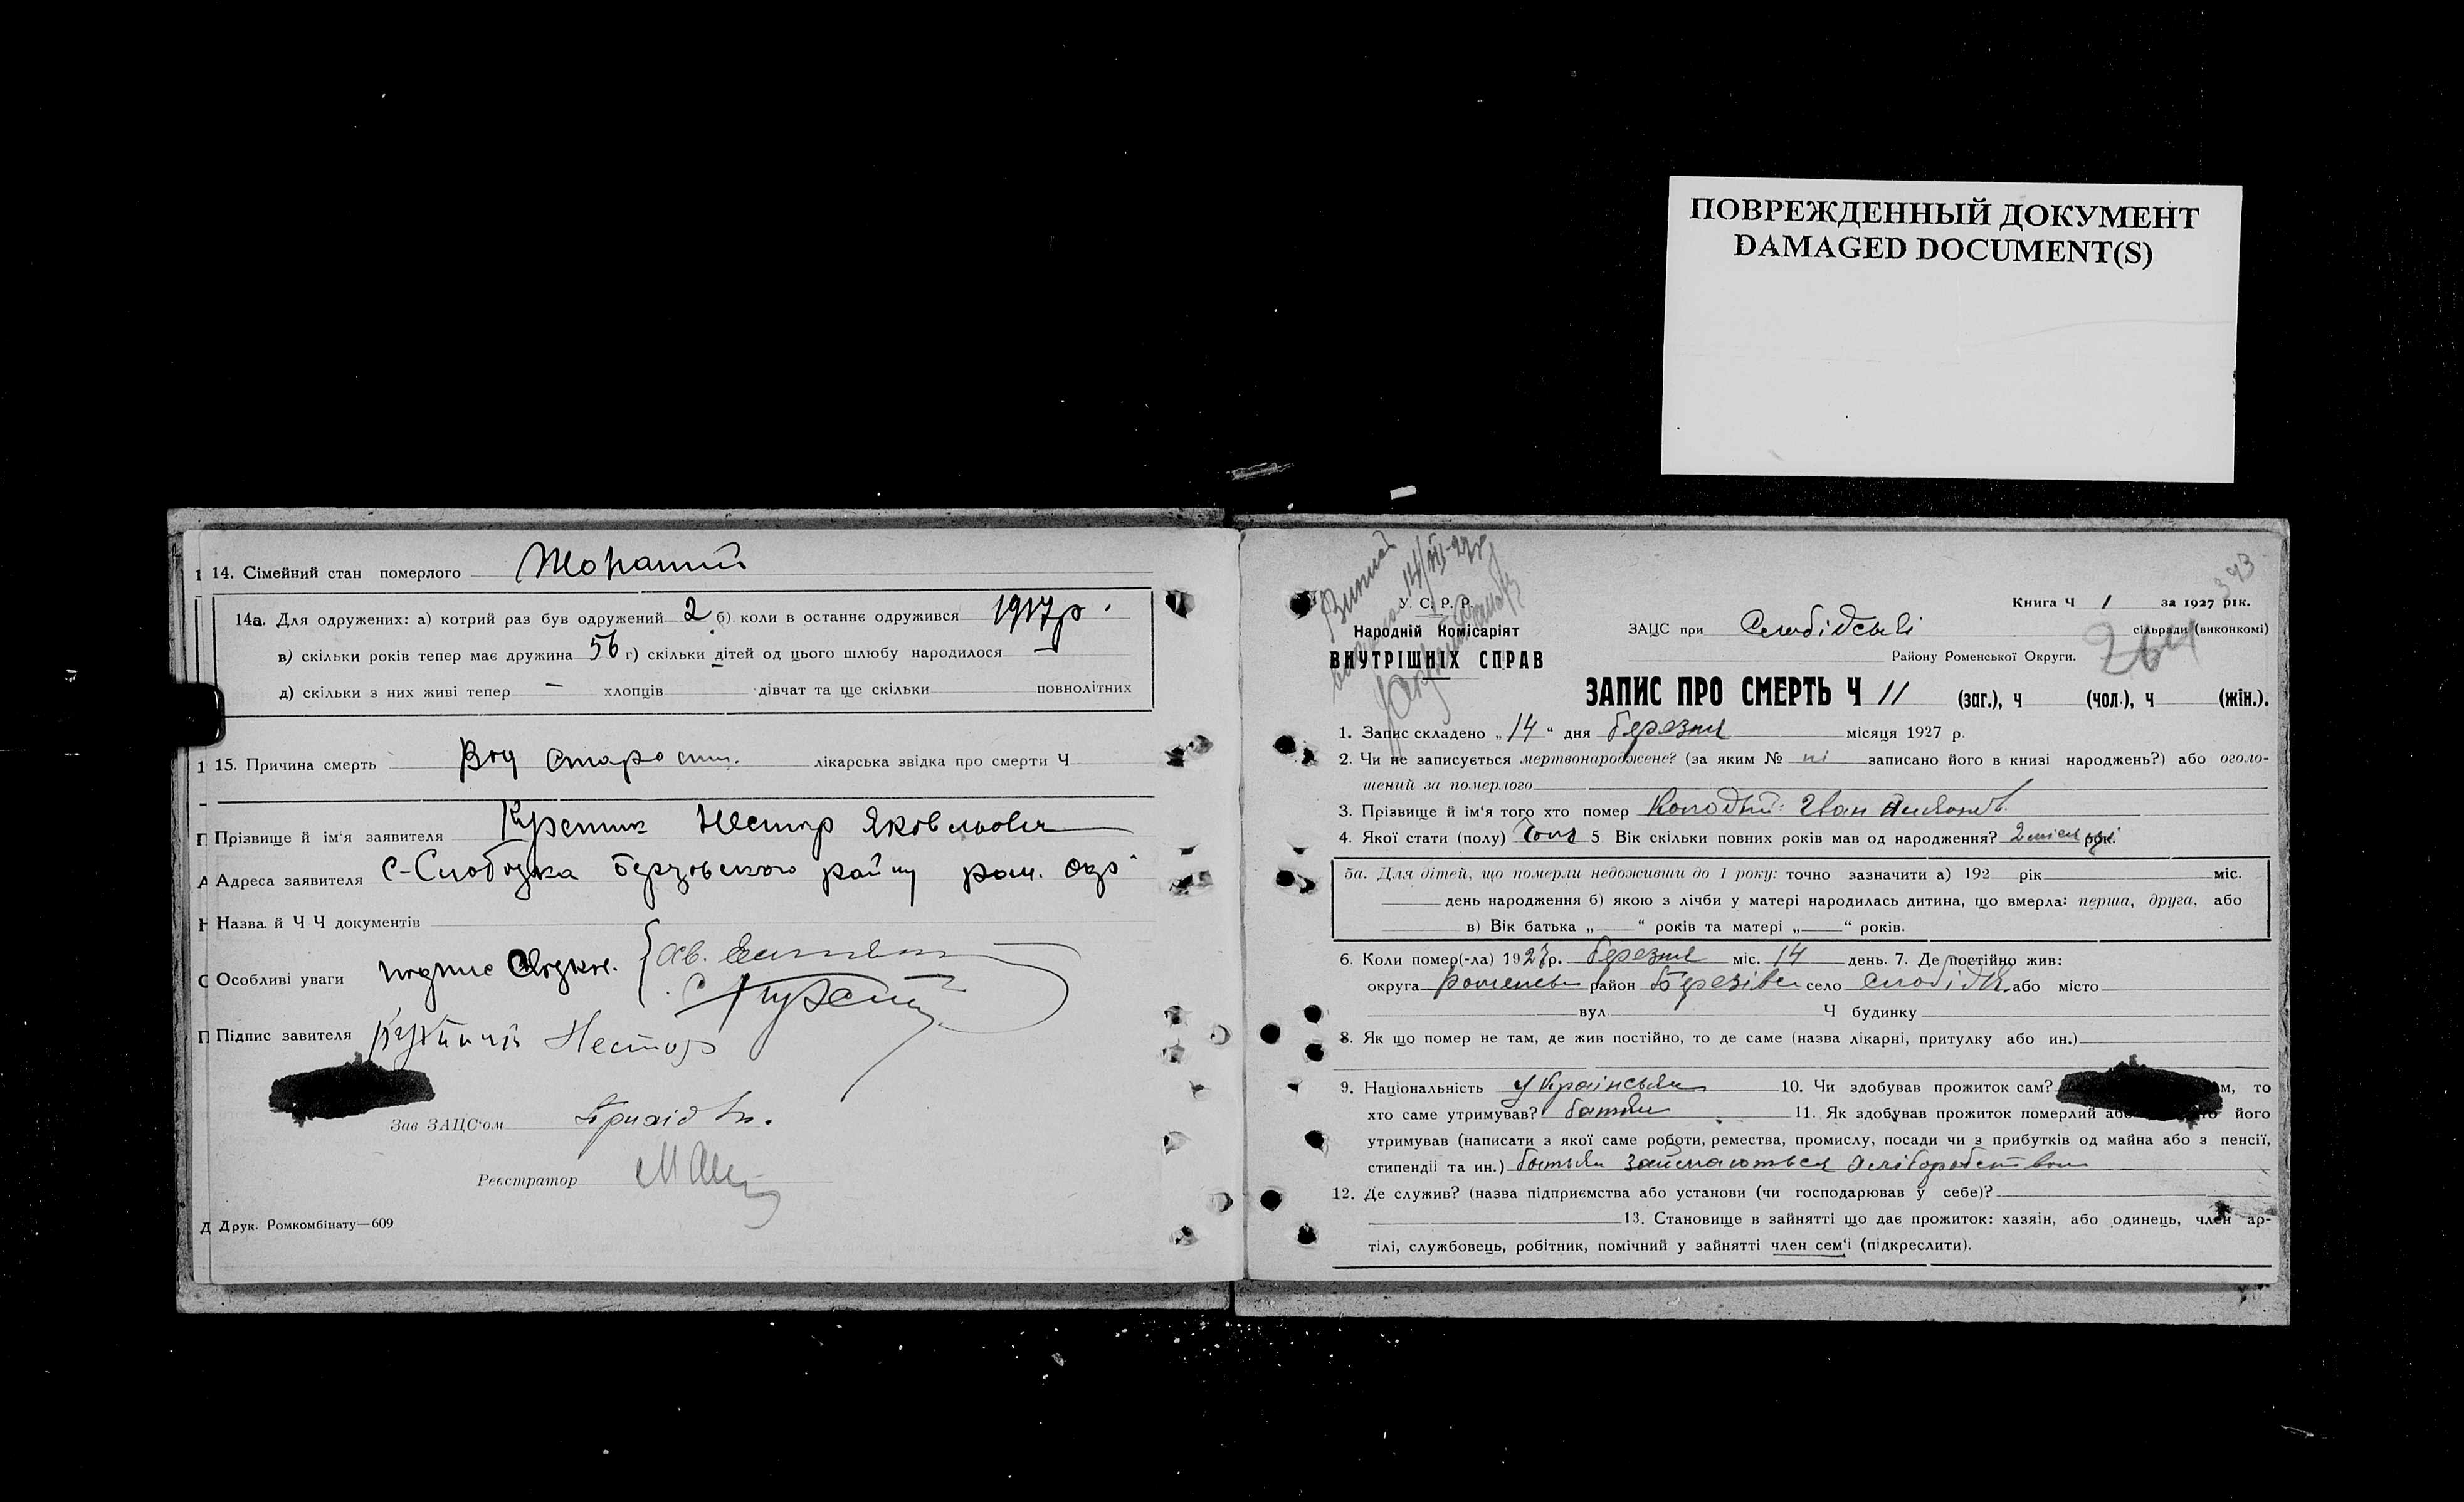 ПОВРЕЖДЕННЫЙ ДОКУМЕНТ
DAMAGED DOCUMENT(S)
14. Сімейний стан померлого
14а. Для одружених: а) котрий раз був одружений 2 б) коли в останнє одружився 1917р.
в) скільки років тепер має дружина 56 г) скільки дітей од цього шлюбу народилося —
д) скільки з них живі тепер — хлопців дівчат та ще скільки повнолітних
15. Причина смерть Від старости. лікарська звідка про смерти Ч
Прізвище й ім'я заявителя Нестор Яковльович
Адреса заявителя с-Слобідка районy ром. окр
Назва й Ч Ч документів
Особливі уваги
Підпис завителя Нестор
Зав ЗАЦС'ом
Реєстратор
Друк. Ромкомбінату—609
343
У. С. Р. Р.
Народній Комісаріят
ВНУТРІШНІХ СПРАВ
Книга Ч 1 за 1927 рік.
ЗАЦС при Слобідські сільради (виконкомі)
264
Району Роменської Округи.
ЗАПИС ПРО СМЕРТЬ Ч 11 (заг.), ч (чол.), ч (жін.).
1. Запис складено „14“ дня березня місяця 1927 р.
2. Чи не записується мертвонароджене? (за яким № ні записано його в книзі народжень?) або оголо-
шений за померлого
3. Прізвище й ім'я того хто помер Іван
4. Якої стати (полу) Чол 5 Вік скільки повних років мав од народження? 2 рок.
5а. Для дітей, що померли недоживши до 1 року: точно зазначити а) 192 рік міс.
день народження б) якою з лічби у матері народилась дитина, що вмерла: перша, друга, або
в) Вік батька „ “ років та матері „ “ років.
6. Коли помер(-ла) 1927р. березня міс. 14 день. 7. Де постійно жив:
округа роменськ район Березівськ село слобідка або місто
вул. Ч будинку
8. Як що помер не там, де жив постійно, то де саме (назва лікарні, притулку або ин.)
9. Національність Українськ 10. Чи здобував прожиток сам? м, то
хто саме утримував? батьки 11. Як здобував прожиток померлий або його
утримував (написати з якої саме роботи, ремества, промислу, посади чи з прибутків од майна або з пенсії,
стипендії та ин.) батьки займаються хліборобством
12. Де служив? (назва підприємства або установи (чи господарював у себе)?
13. Становище в зайнятті що дає прожиток: хазяін, або одинець, член ар-
тілі, службовець, робітник, помічний у зайнятті член сем'ї (підкреслити).